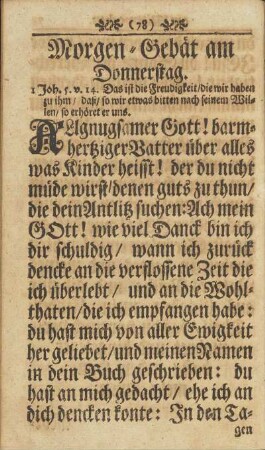 (78)
Morgen-Gebät am
Donnerstag.
1 Joh. 5. v. 14. Das ist die Freudigkeit/die wir haben
zu ihm/ daß/ so wir etwas bitten nach seinem Wil-
len/ so erhöret er uns.
ALlgnugsamer Gott! barm-
hertziger Vatter über alles
was Kinder heisst! der du nicht
müde wirst/denen guts zu thun/
die dein Antlitz suchen: Ach mein
GOtt! wie viel Danck bin ich
dir schuldig/ wann ich zurück
dencke an die verflossene Zeit die
ich überlebt/ und an die Wohl-
thaten/die ich empfangen habe:
du hast mich von aller Ewigkeit
her geliebet/und meinen Namen
in dein Buch geschrieben: du
hast an mich gedacht/ ehe ich an
dich dencken konte: In den Ta-
gen